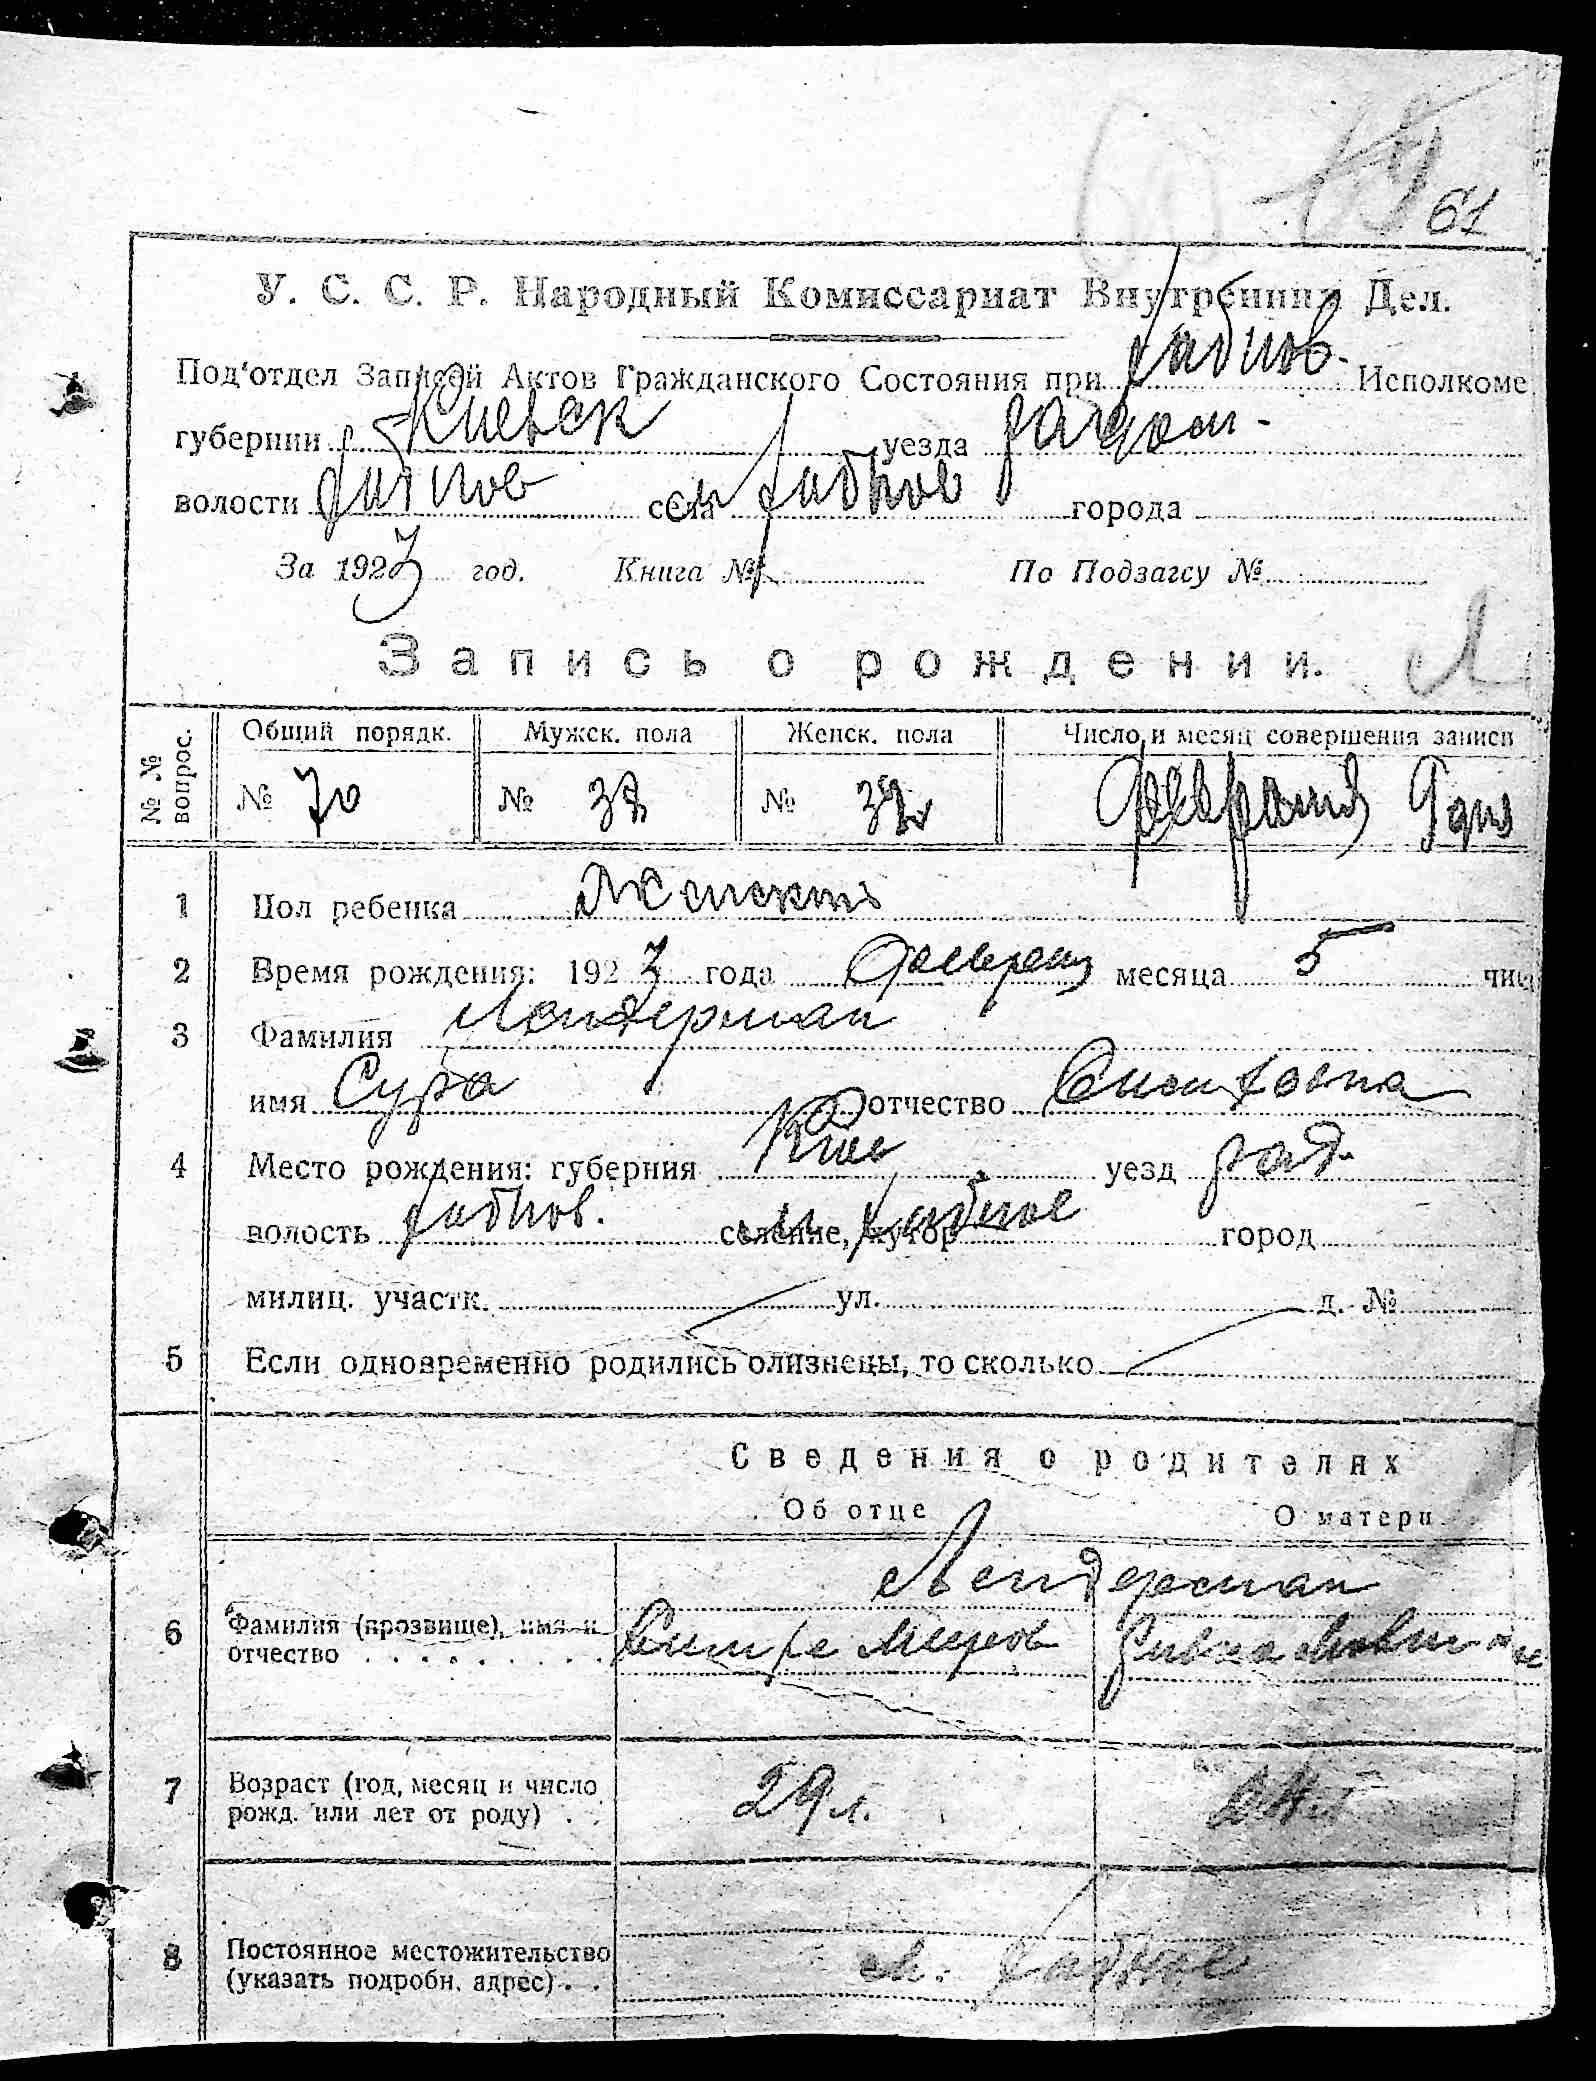 61
У. С. С. Р. Народный Комиссариат Внутренних Дел.
Под'отдел Записей Актов Гражданского Состояния при Хабнов. Исполкоме
губернии Киевск уезда Радом.
волости Хабнов села м Хабнов города
За 1923 год. Книга № По Подзагсу №
Запись о рождении.
№ № вопрос. Общий порядк. Мужск. пола Женск. пола Число и месяц совершения записи
№ 70 № 38 № 32 Февраля 9 дня
1 Пол ребенка Женский
2 Время рождения: 1923 года Февраля месяца 5 чис
3 Фамилия Лендерман
имя Сура отчество
4 Место рождения: губерния Киев уезд Рад.
волость Хабнов. селение, хутор м. Хабное город
милиц. участк. ул. д. №
5 Если одновременно родились близнецы, то сколько
Сведения о родителях
Об отце О матери
Лендерман
6 Фамилия (прозвище), имя и отчество Мееров Ривка
7 Возраст (год, месяц и число рожд. или лет от роду) 29 л.
8 Постоянное местожительство (указать подробн. адрес) м. Хабное